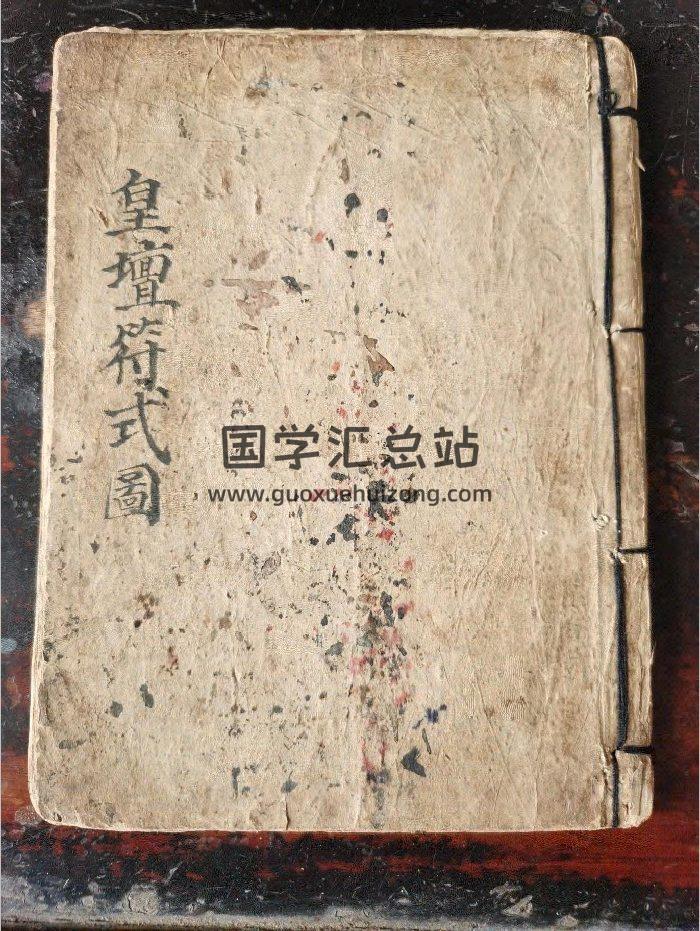 皇壇符式圖
国学汇总站
www.guoxuehuizong.com